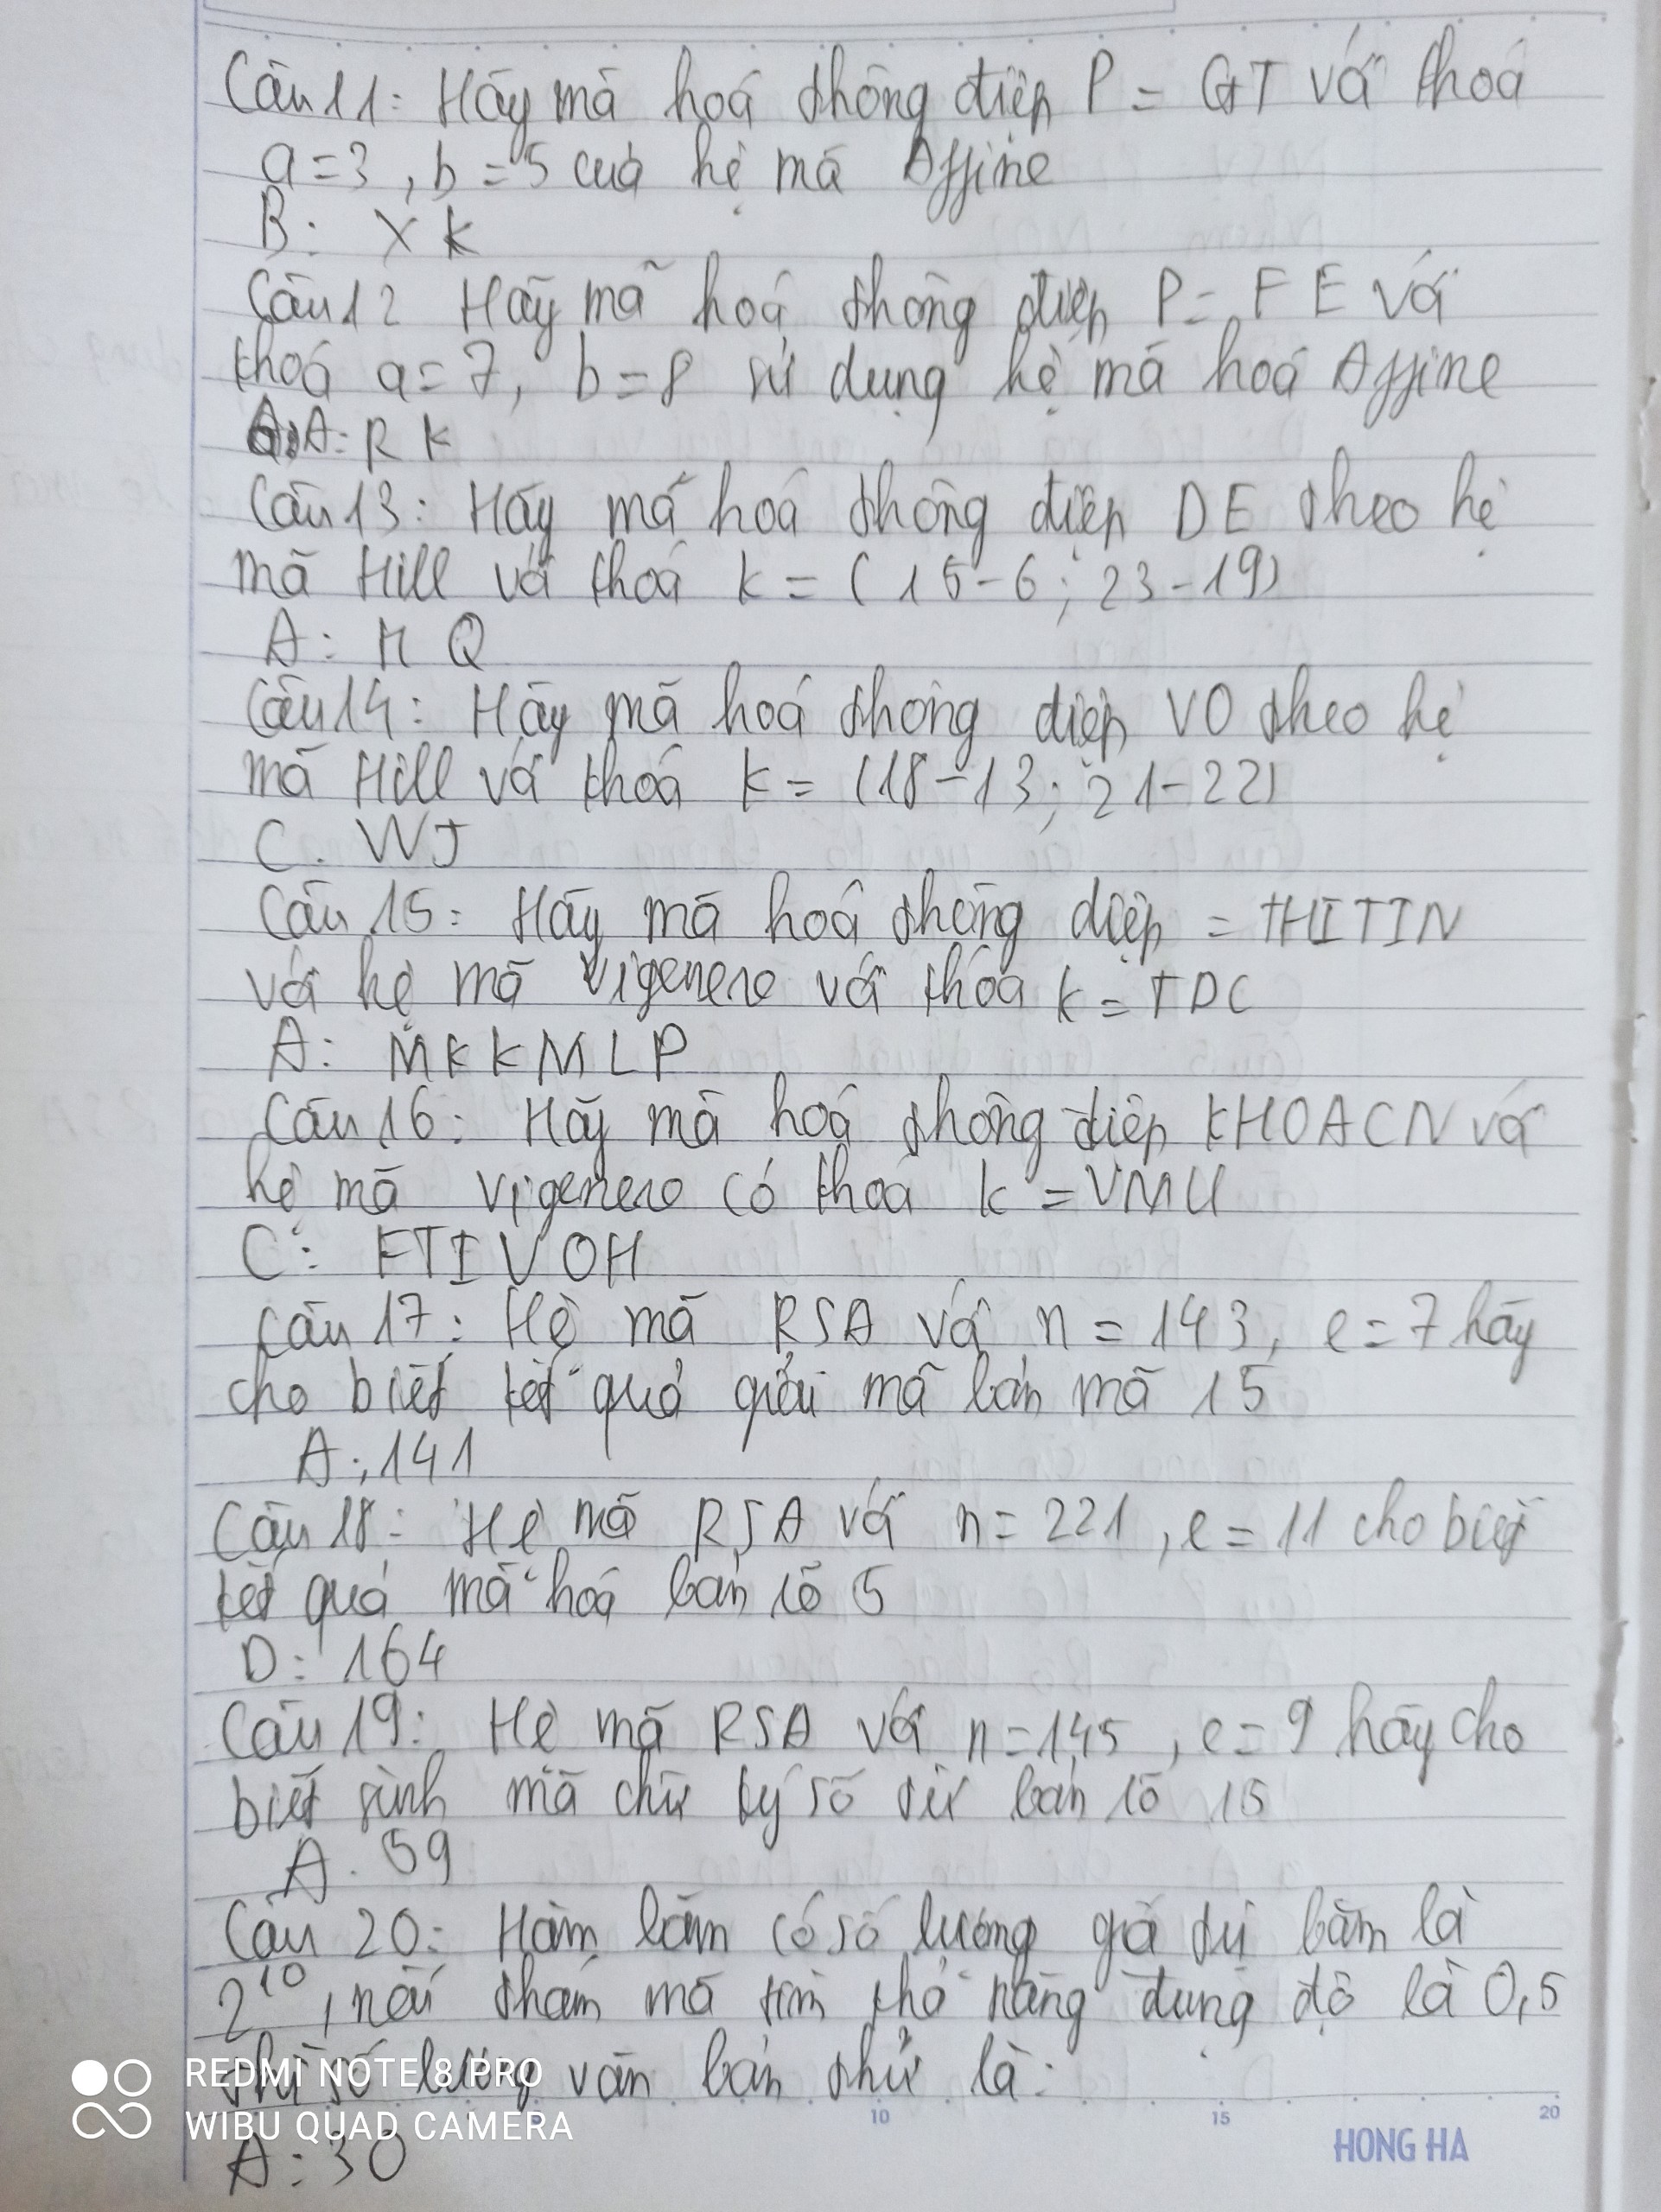 Câu 11: Hãy mã hoá thông điệp P = GT với khoá
a=3, b=5 của hệ mã Affine
B: XK
Câu 12 Hãy mã hoá thông điệp P= FE với
khoá a=7, b=8 sử dụng hệ mã hoá Affine
A: RK
Câu 13: Hãy mã hoá thông điệp DE theo hệ
mã Hill với khoá k = (15-6; 23-19)
A: MQ
Câu 14: Hãy mã hoá thông điệp VO theo hệ
mã Hill với khoá k = (18-13; 21-22)
C. WJ
Câu 15: Hãy mã hoá thông điệp = THITIN
với hệ mã vigenere với khóa k = TDC
A: MKKMLP
Câu 16: Hãy mã hoá thông điệp KHOACN với
hệ mã vigenere có khoá k = VMU
C: FTIVOH
Câu 17: Hệ mã RSA với n = 143, e=7 hãy
cho biết kết quả giải mã bản mã 15
A: 141
Câu 18: Hệ mã RSA với n= 221, e = 11 cho biết
kết quả mã hoá bản rõ 5
D: 164
Câu 19: Hệ mã RSA với n=145, e=9 hãy cho
biết sinh mã chữ ký số từ bản rõ 15
A. 59
Câu 20: Hàm băm có số lượng giá trị băm là
2^10, nếu thám mã tìm khả năng đụng độ là 0,5
thì số lượng văn bản thử là:
A: 30
REDMI NOTE 8 PRO
WIBU QUAD CAMERA
10 15 20
HONG HA